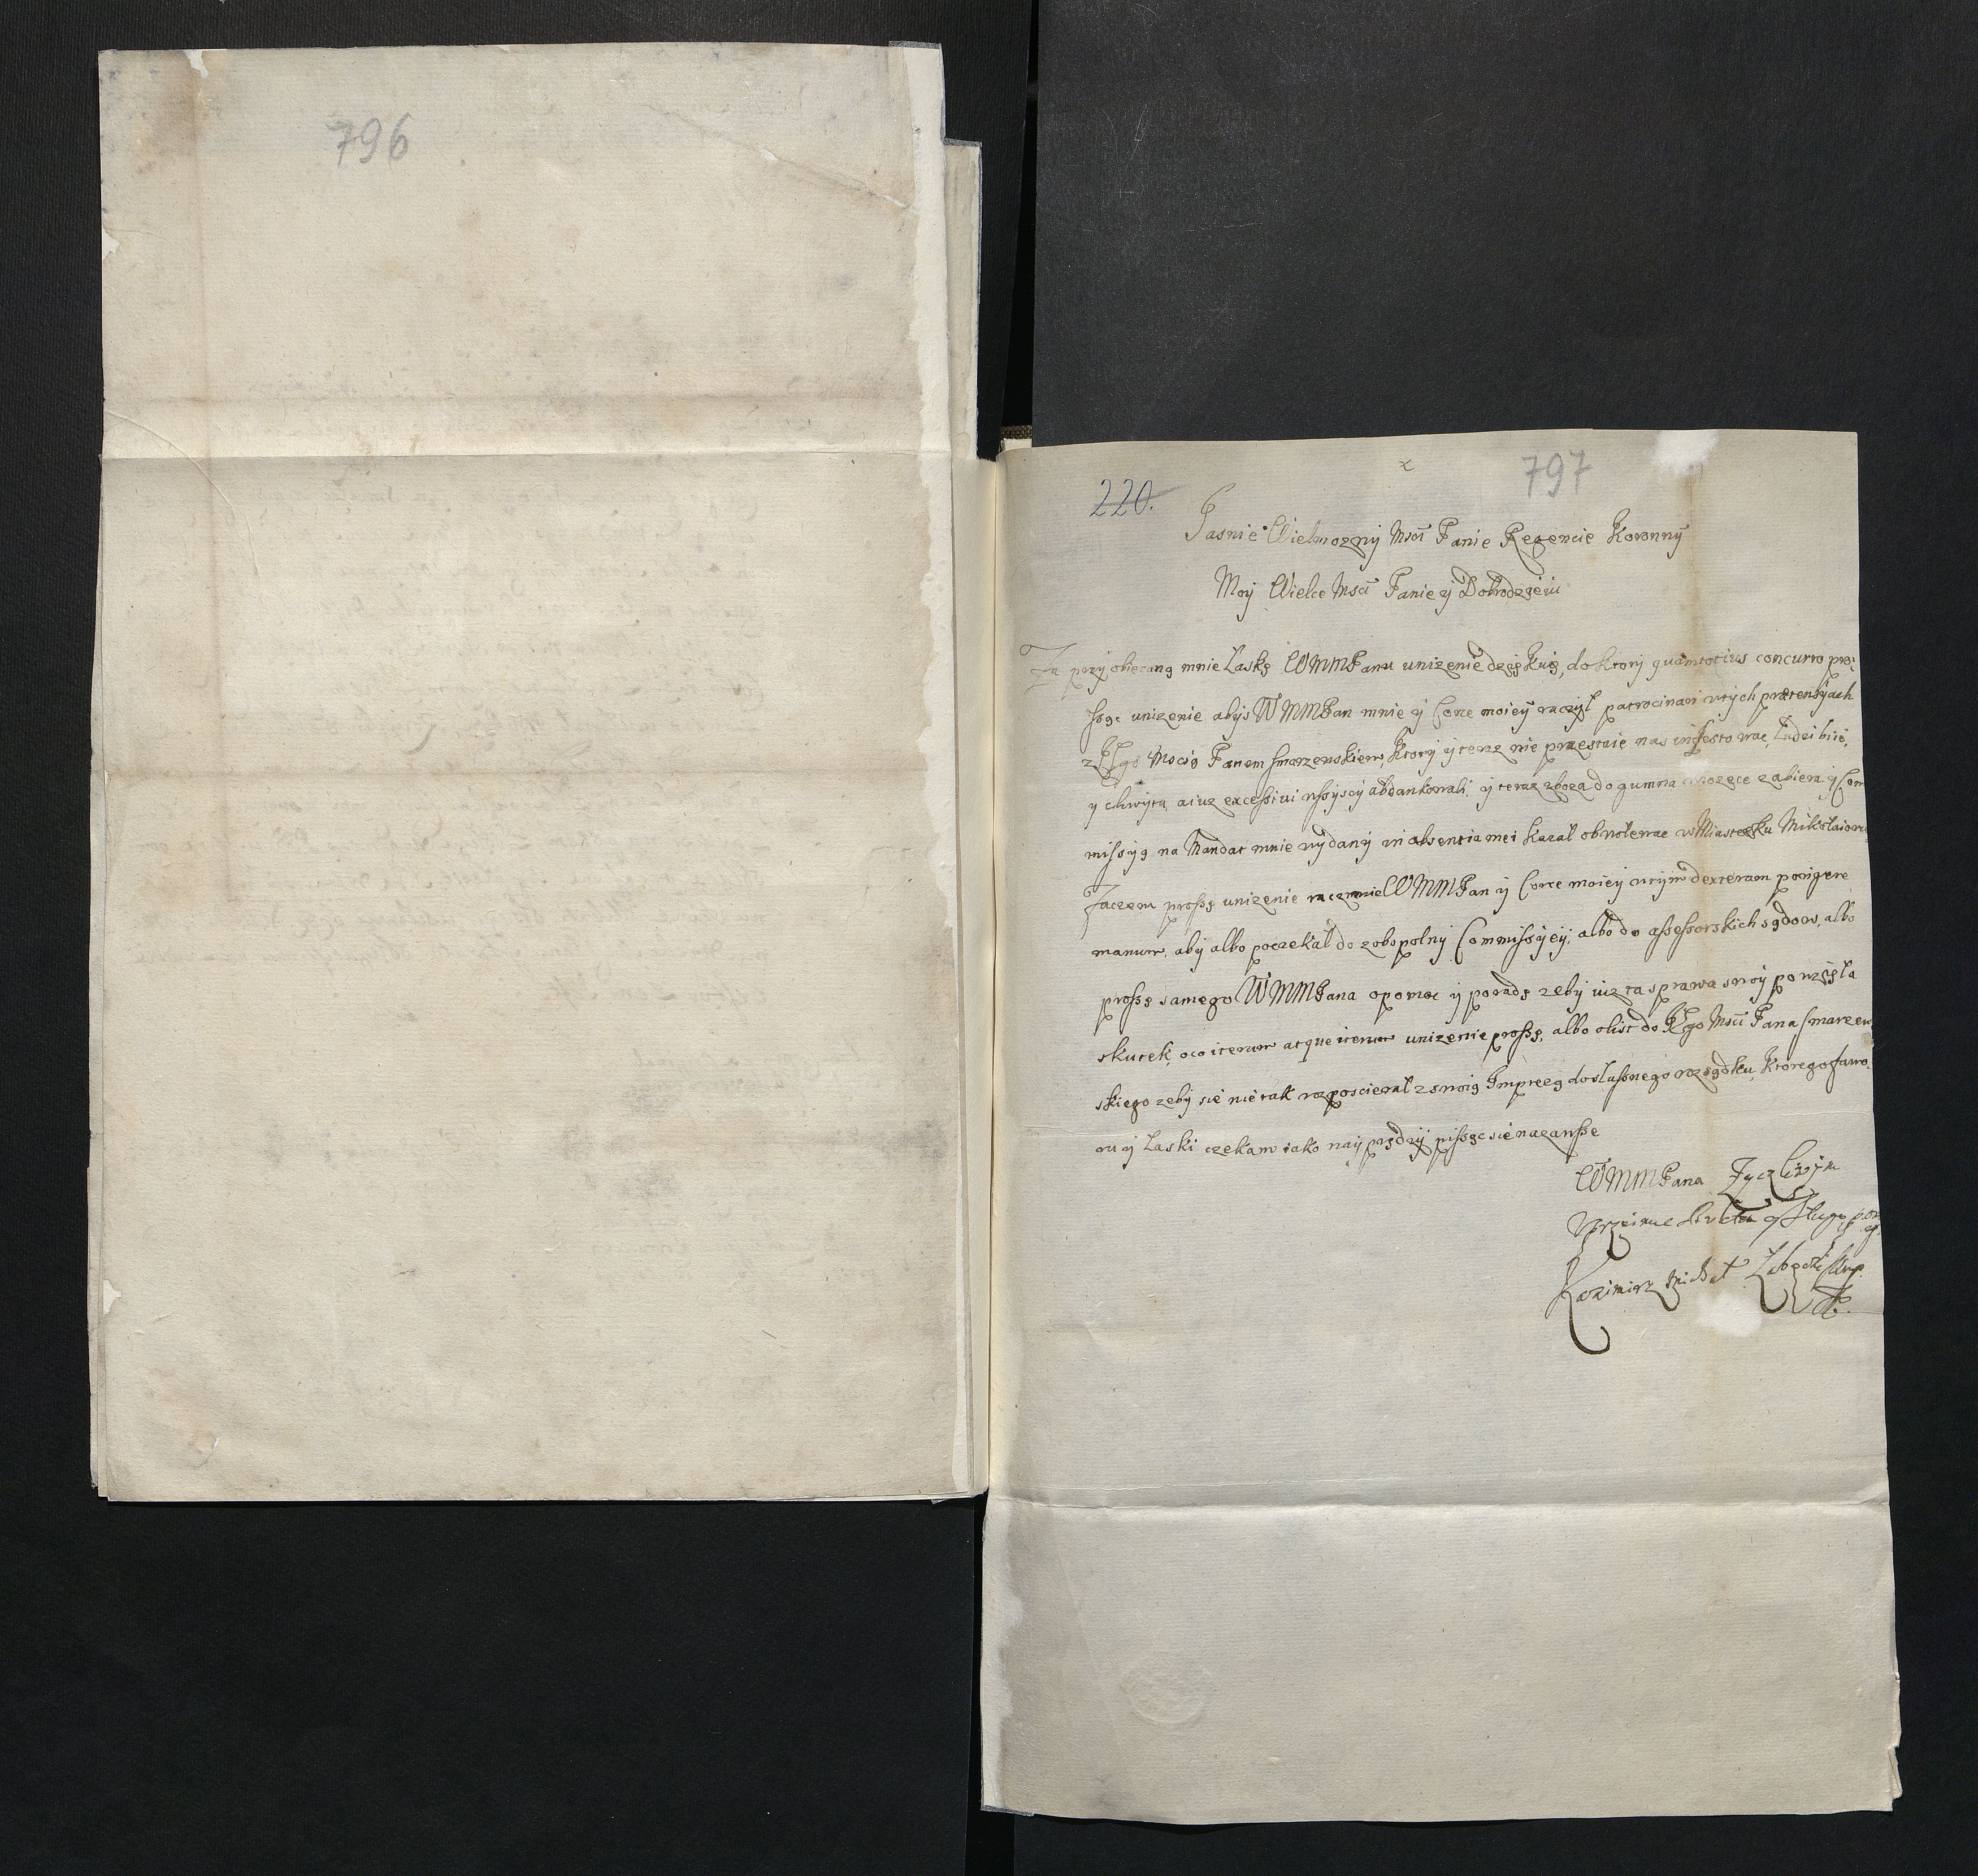 796
797
220.
Jasnie Wielmozny Msci Panie Regencie Koronny
Moy Wielce Msci Panie y Dobrodzieiu
Za przyobiecaną mnie Laskę WMMPanu unizenie dzię Kuię, do Ktory quamtotius concurro pro:
ssąc unizenie abys WMMPan mnie y Corce moiey raczył patrocinari wtych prætensyach
z Jego Mscią Panem Smarzewskiem, Ktory y teraz nie przestaie nas infestowac, Ludzi biie,
y chwyta, aiuz excessivi wssyscy abdankowali, y teraz zboza do gumna zabiera y Com
missyą na Mandat mnie wydany in absentia mei kazał obwolewac w Miasteczku Mikołaiow
Zaczem proszę unizenie racz mnie WMMPan y Corce moiey wtym dexteram porigere
manum, aby albo poczekał do zobopolny Commissyey, albo do assessorskich sądow, albo
proszę samego WMMPana o pomoc y poradę zeby iuz ta sprawa swoy powzięła
skutek, oco iterum atque iterum unizenie proszę, albo olist do Jego Msci Pana Smarzew
skiego zeby sie nie tak rozposcierał z swoią Imprezą do słusznego rozsądku, Ktorego fawo
ru y Laski czekam iako nayprędzy pissąc sie nazawsse
WMMPana Zyczliwym
Kazimierz Michał